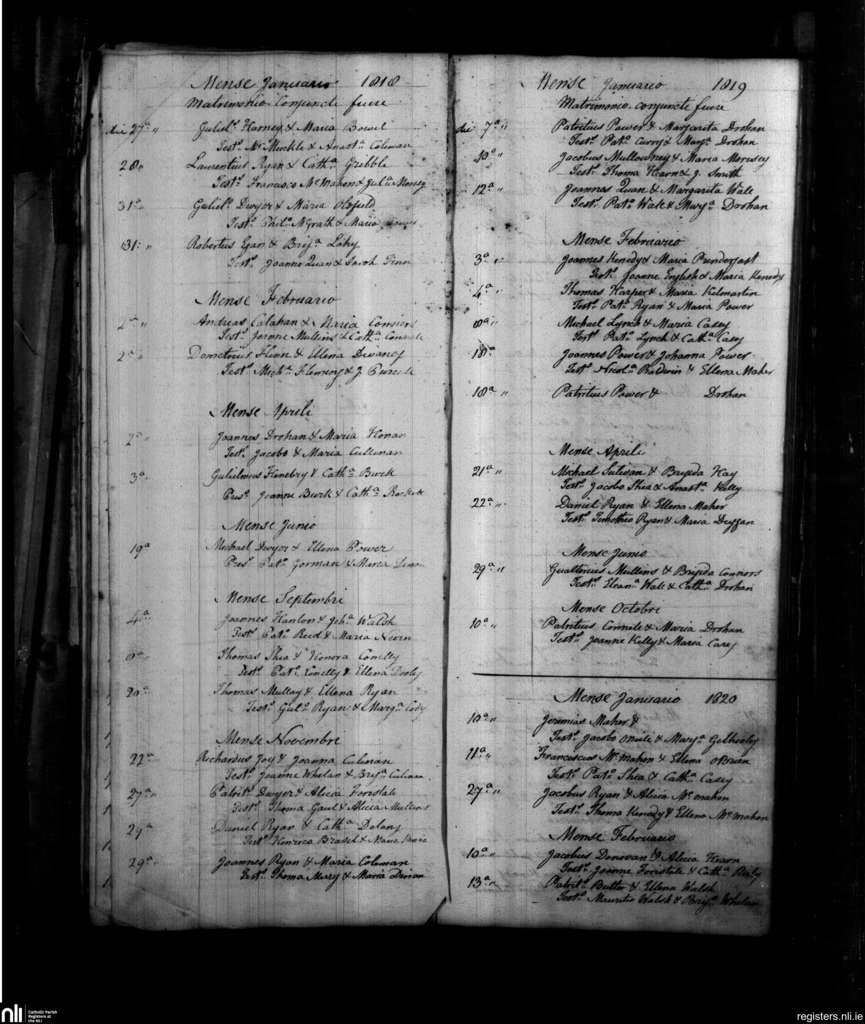 Mense Januario 1818
Matrimonio conjuncti fuere
die 27ª " Guliel.s Harney & Maria Bowel
Test.s Mr Muckle & Anast.a Coleman
28 " Laurentius Ryan & Cath.a Gribble
Test.s Francisco McMahon & Jul.a
31ª Guliel.s Dwyer & Maria Oldfield
Test.s Phil.o McGrath & Maria
31 " Robertus Egan & Brij.a Lahy
Test.s Joanne Quan & Sarah Finn
Mense Februario
2ª " Andreas Calahan & Maria Connors
Test.s Joanne Mullins & Cath.a
2ª " Demetrius Flinn & Ellena Devaney
Test.s Mich.e Fleming & J. Purcele
Mense Aprili
2ª " Joannes Drohan & Maria Honan
Test.s Jacobo & Maria Cullinan
3ª Gulielmus Henebry & Cath.a Burk
Pres.s Joanne Burk & Cath.a
Mense Junio
19ª Michael Dwyer & Ellena Power
Pres.s Pat.o Gorman & Maria
Mense Septembri
4ª Joannes Hanlon & Joh.a Walsh
Test.s Pat.o Reid & Maria
Thomas Shea & Honora Conelly
Test.s Pat.o Conelly & Ellena Dooly
20ª Thomas Mullay & Ellena Ryan
Test.s Gul.o Ryan & Marg.a Cody
Mense Novembre
22ª Richardus Joy & Joanna Culinan
Test.s Joanne Whelan & Brij.a Culinan
27ª Patrit.s Dwyer & Alicia Forestale
Test.s Thoma Gaul & Alicia Mullins
29ª Daniel Ryan & Cath.a Delany
Test.s Henrico Bradil & Maria
29ª Joannes Ryan & Maria Coleman
Test.s Thoma Mary & Maria
Mense Januario 1819
Matrimonio conjuncti fuere
die 7ª " Patritius Power & Margarita Drohan
Test.s Pat.o Curry & Marg.a Drohan
10ª " Jacobus Mullowney & Maria Morrisey
Test.s Thoma Hearn & J. Smith
12ª " Joannes Quan & Margarita Wale
Test.s Pat.o Wale & Marg.a Drohan
Mense Februario
3ª " Joannes Kenedy & Maria Prendergast
Test.s Joanne English & Maria Kenedy
4ª " Thomas Harper & Maria Kilmartin
Test.s Pat.o Ryan & Maria Power
8ª " Michael Lynch & Maria Casey
Test.s Pat.o Lynch & Cath.a Casey
18ª " Joannes Power & Johanna Power
Test.s Nicol.o Baldwin & Ellena Maher
18ª " Patritius Power & Drohan
Mense Aprili
21ª " Michael Sulivan & Brijida Hay
Test.s Jacobo Shea & Anast.a Kelly
22ª " Daniel Ryan & Ellena Maher
Test.s Timotheo Ryan & Maria Deggan
Mense Junio
29ª " Gualterius Mullins & Brijida Connors
Test.s Elean.a Wale & Cath.a Drohan
Mense Octobre
10ª " Patritius Connole & Maria Drohan
Test.s Joanne Kelly & Maria Carey
Mense Januario 1820
10ª " Jeremias Maher &
Test.s Jacobo Oneile & Marg.a Gelberley
11ª " Franciscus McMahon & Ellena OBrien
Test.s Pat.o Shea & Cath.a Casey
27ª " Jacobus Ryan & Alicia McMahon
Test.s Thoma Kenedy & Ellena McMahon
Mense Februario
10ª " Jacobus Donovan & Alicia Hearn
Test.s Joanne Forristale & Cath.a Daly
13ª " Patrit.s Butler & Ellena Walsh
Test.s Mauritio Walsh & Brij.a Whelan
nli Catholic Parish Registers at the NLI
registers.nli.ie